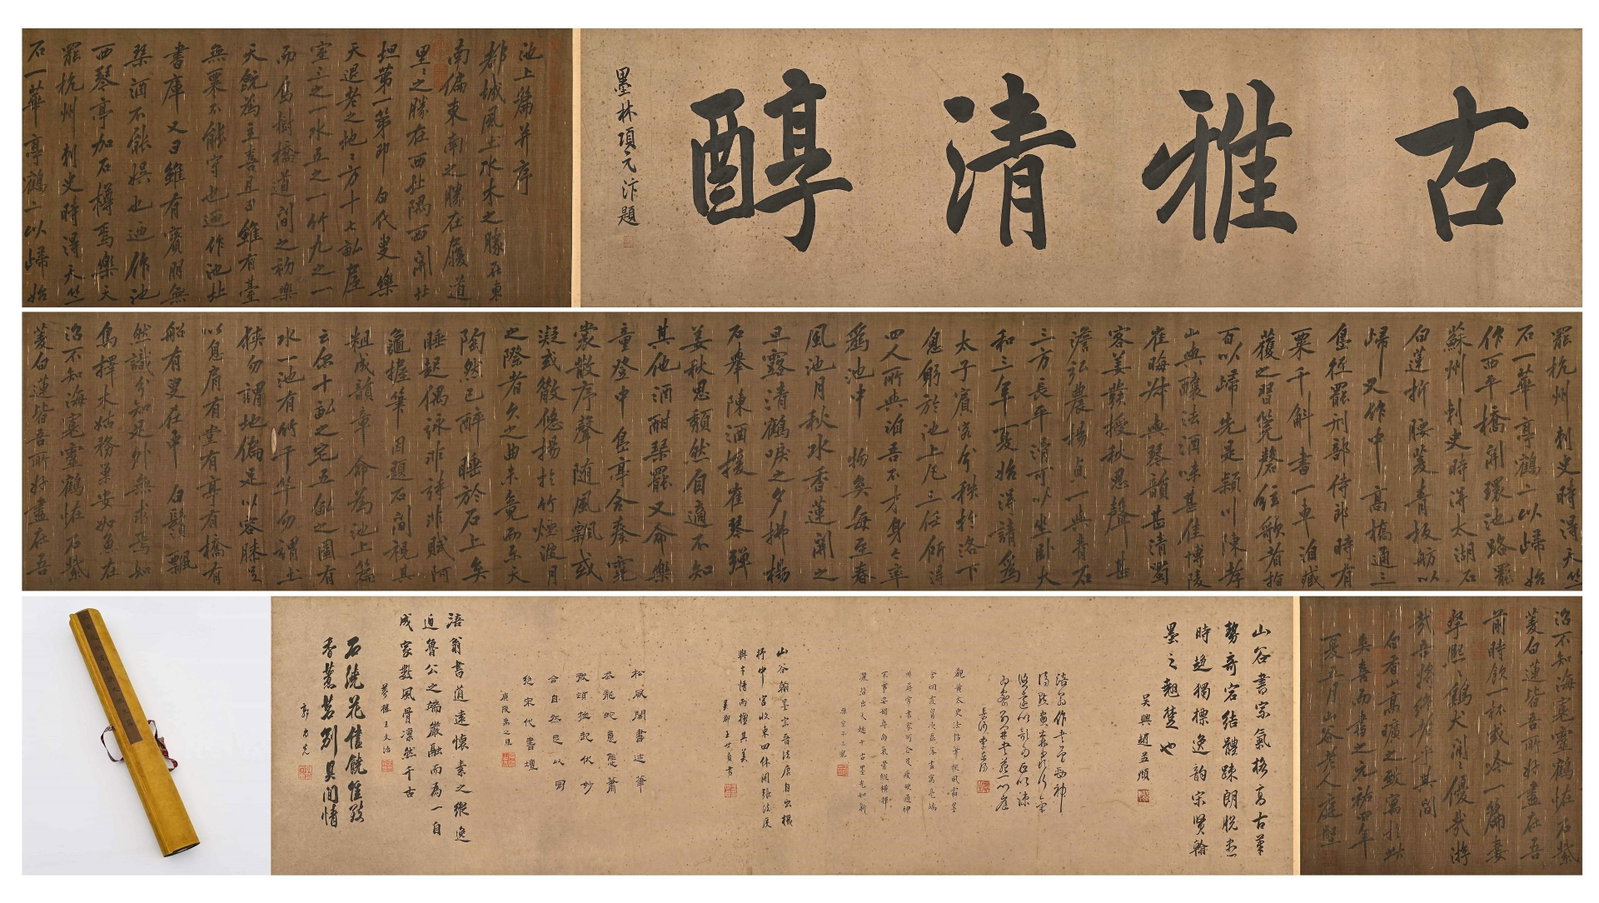 古雅清醇
墨林項元汴題
池上篇并序
都城風土水木之勝在東
南偏東南之勝在履道
里里之勝在西北隅西閈北
垣第一第即白氏叟樂
天退老之地地方十七畝屋
室三之一水五之一竹九之一
而島樹橋道間之初樂
天既為主喜且曰雖有臺
無粟不能守也迺作池北
書庫又曰雖有賓朋無
琴酒不能娛也迺作池
西琴亭加石樽焉樂天
罷杭州刺史時得天竺
石一華亭鶴二以歸始
罷杭州刺史時得天竺
石一華亭鶴二以歸始
作西平橋開環池路罷
蘇州刺史時得太湖石
白蓮折腰菱青板舫以
歸又作中高橋通三
島徑罷刑部侍郎時有
粟千斛書一車洎臧
獲之習筦磬絃歌者指
百以歸先是潁川陳孝
山與釀法酒味甚佳博陵
崔晦叔與琴韻甚清蜀
客姜發授秋思聲甚
澹弘農楊貞一與青石
三方長平滑可以坐臥大
和三年夏始得請為
太子賓客分秩於洛下
息躬於池上凡三任所得
四人所與洎吾不才身今率
為池中物矣每至春
風池月秋水香蓮開之
旦露清鶴唳之夕拂楊
石舉陳酒援崔琴彈
姜秋思頹然自適不知
其他酒酣琴罷又命樂
童登中島亭合奏霓
裳散序聲隨風飄或
凝或散悠揚於竹煙波月
之際者久之曲未竟而樂天
陶然已醉睡於石上矣
睡起偶詠非詩非賦阿
龜握筆因題石間視其
粗成韻章命為池上篇
云爾十畝之宅五畝之園有
水一池有竹千竿勿謂土
狹勿謂地偏足以容膝足
以息肩有堂有亭有橋有
船有叟在中白鬚飄
然識分知足外無求焉如
鳥擇木姑務巢安如魚在
沼不知海寬靈鶴怪石紫
菱白蓮皆吾所好盡在吾
沼不知海寬靈鶴怪石紫
菱白蓮皆吾所好盡在吾
前時飲一杯或吟一篇妻
孥熙熙鶴犬閑閑優哉游
哉吾將終老乎其間
白香山高曠之致寓於此
矣喜而書之元祐四年
夏六月山谷老人庭堅
山谷書宗氣格高古筆
勢奇宕結體疎朗脫盡
時逕獨標逸韵宋賢翰
墨之翹楚也
吳興趙孟頫
山谷翰墨宗晉法唐自出機
杼中宮收束四体開張法度
與才情而擅其美
松風閣書逆筆
合自然足以開
絕宋代書壇
涪翁書道遠懷素之縱逸
近魯公之端嚴融而為一自
成家數風骨凜然千古
夢樓王文治
石濤花信饒佳致
香煮茗別具閒情